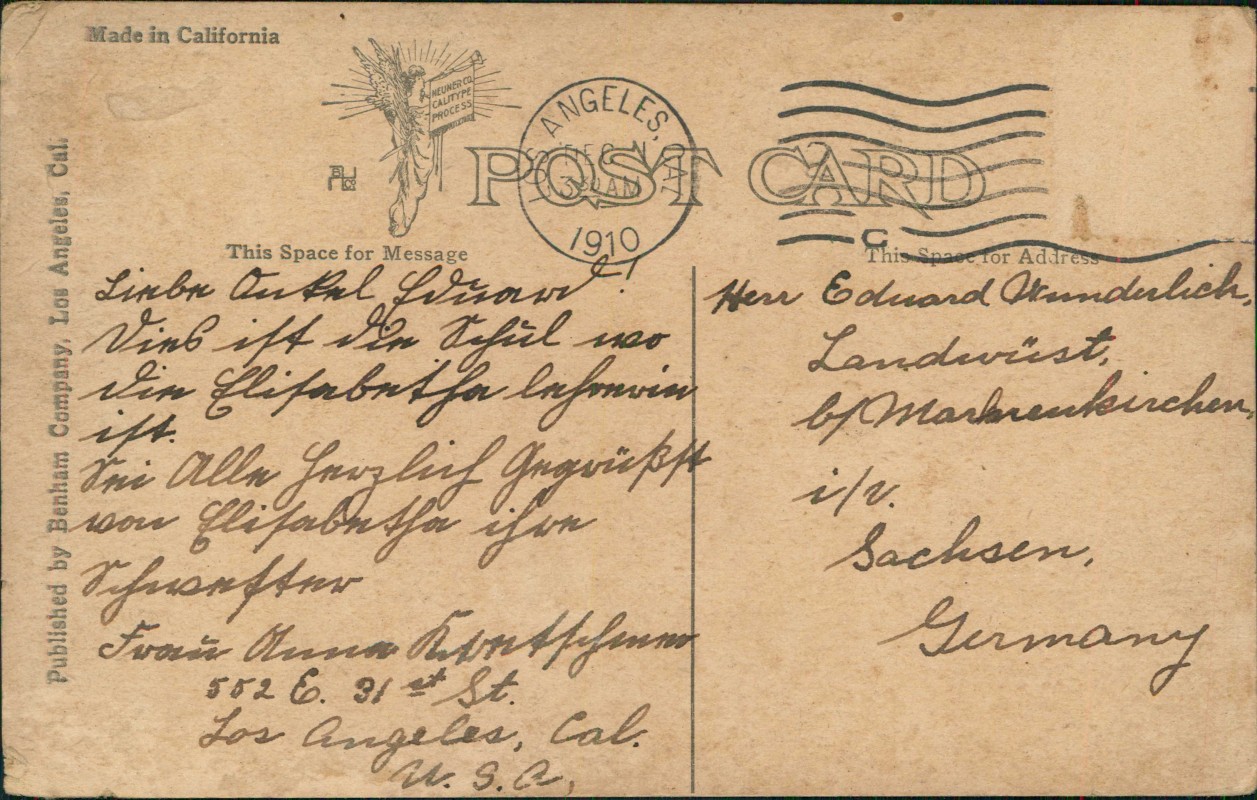 Made in California
NEUNER CO.
CALITYPE
PROCESS
LOS ANGELES, CAL
DEC
AM
1910
POST CARD
C
This Space for Message
This Space for Address
Published by Benham Company, Los Angeles, Cal.
Liebe Onkel Eduard!
Dies ist die Schul wo
die Elisabetha lehrerin
ist.
Sei Alle herzlich Gegrüßst
von Elisabetha ihre
Schwester
Frau Anna Kretschmer
552 E. 31st St.
Los Angeles, Cal.
U. S. A.
Herr Eduard Wunderlich,
Landwüst,
b/ Markneukirchen
i/v.
Sachsen,
Germany